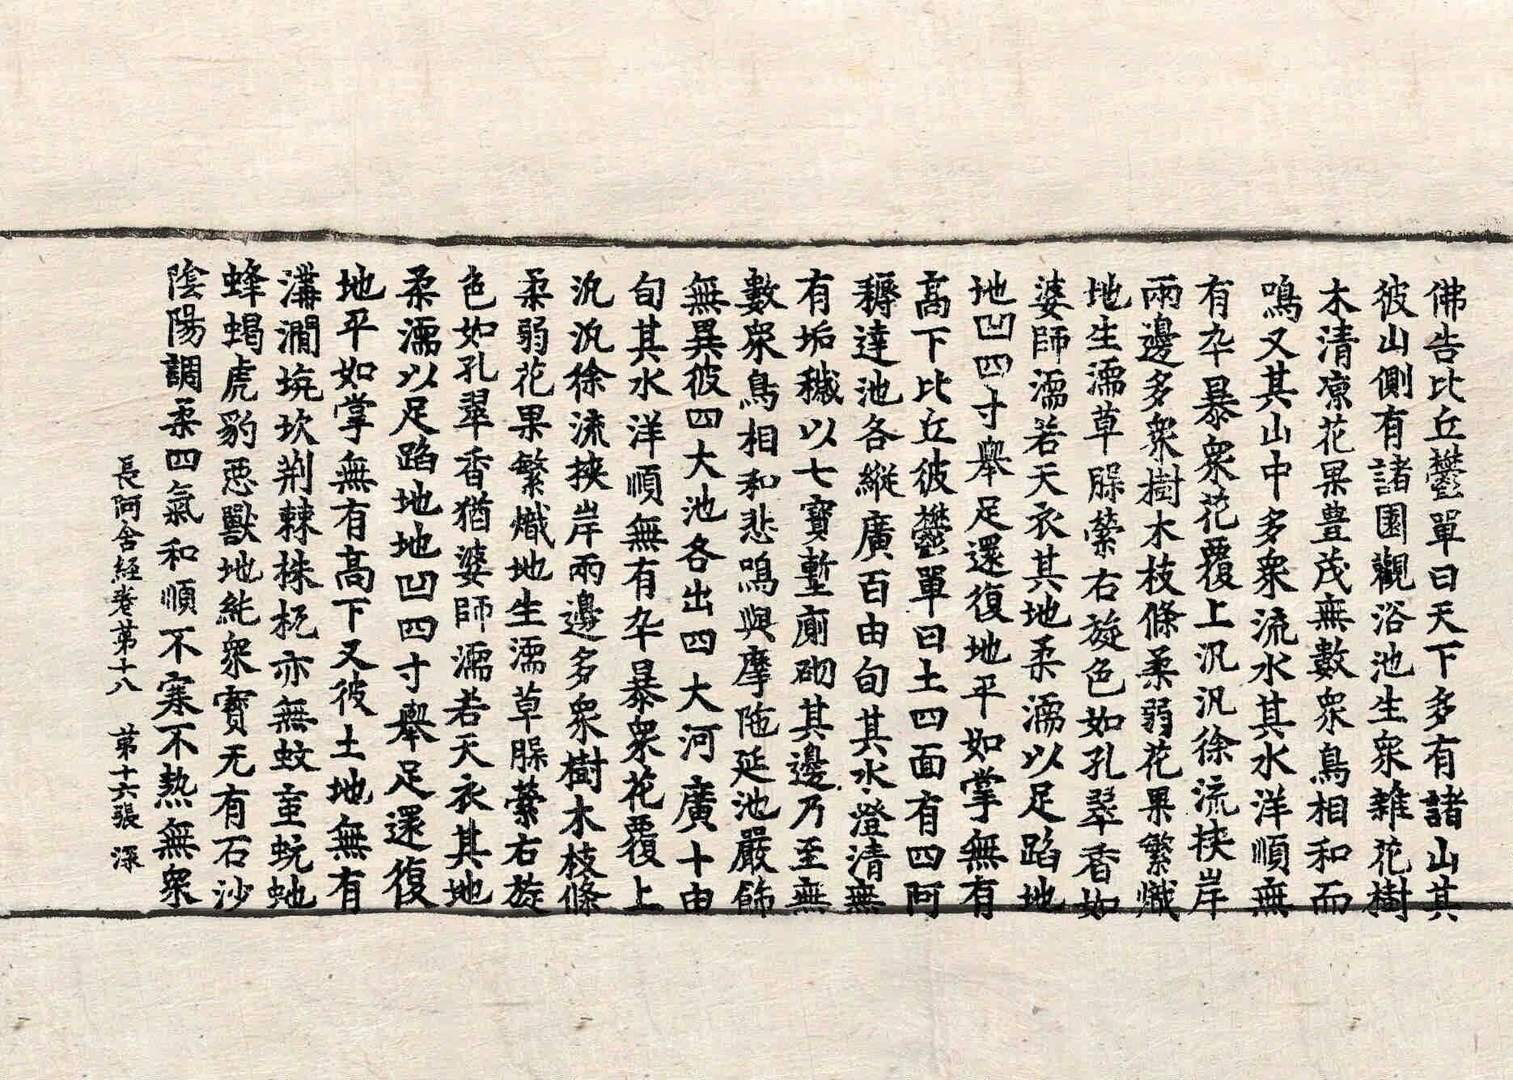 佛告比丘欝單曰天下多有諸山其
彼山側有諸園觀浴池生衆雜花樹
木清涼花果豊茂無數衆鳥相和而
鳴又其山中多衆流水其水洋順無
有卒暴衆花覆上汎汎徐流挾岸
兩邊多衆樹木枝條柔弱花果繁熾
地生濡草槃縈右旋色如孔翠香如
婆師濡若天衣其地柔濡以足蹈地
地凹四寸舉足還復地平如掌無有
高下比丘彼欝單曰土四面有四阿
耨達池各縱廣百由旬其水澄清無
有垢穢以七寶塹廁砌其邊乃至無
數衆鳥相和悲鳴與摩陁延池嚴飾
無異彼四大池各出四大河廣十由
旬其水洋順無有卒暴衆花覆上
汎汎徐流挾岸兩邊多衆樹木枝條
柔弱花果繁熾地生濡草槃縈右旋
色如孔翠香猶婆師濡若天衣其地
柔濡以足蹈地地凹四寸舉足還復
地平如掌無有高下又彼土地無有
溝澗坑坎荆棘株杌亦無蚊蝱蚖虵
蜂蝎虎豹惡獸地純衆寶无有石沙
陰陽調柔四氣和順不寒不熱無衆
長阿含經卷第十八 第十六張 深